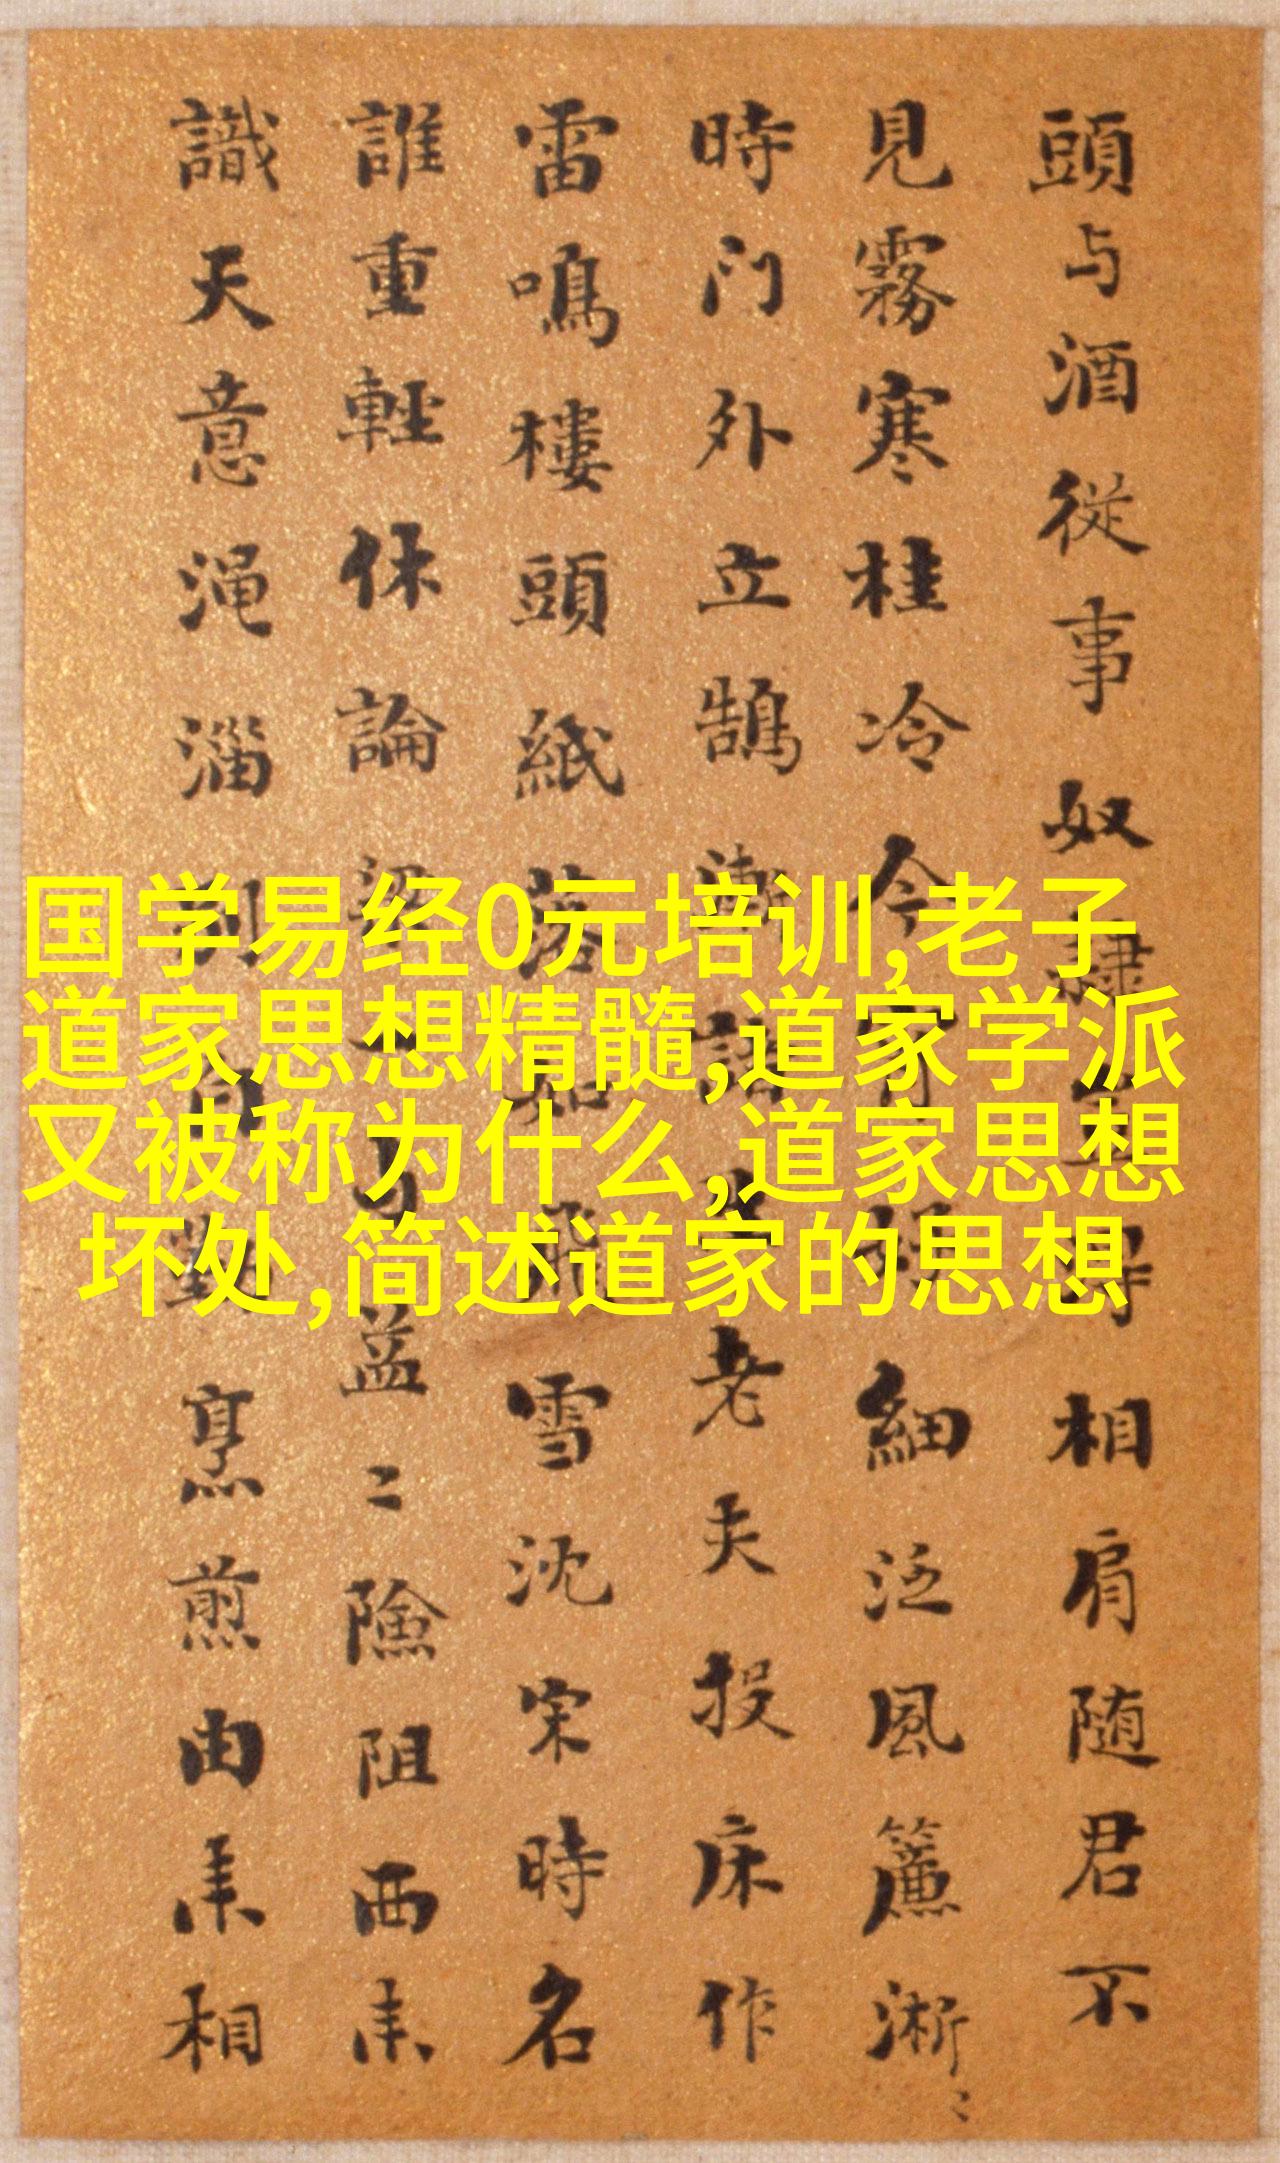 頭与酒從事奴隸得相肩随君不
見霧寒桂冷今細泛風簾淅〻
時门外立鵠老夫投床作
雷鳴樓頭紙落如飛雪沈宋時名
誰重輕休論益〻險阻西来
識天意渑淄別自烹煎由来相
国学易经0元培训,老子
道家思想精髓,道家学派
又被称为什么,道家思想
坏处,简述道家的思想